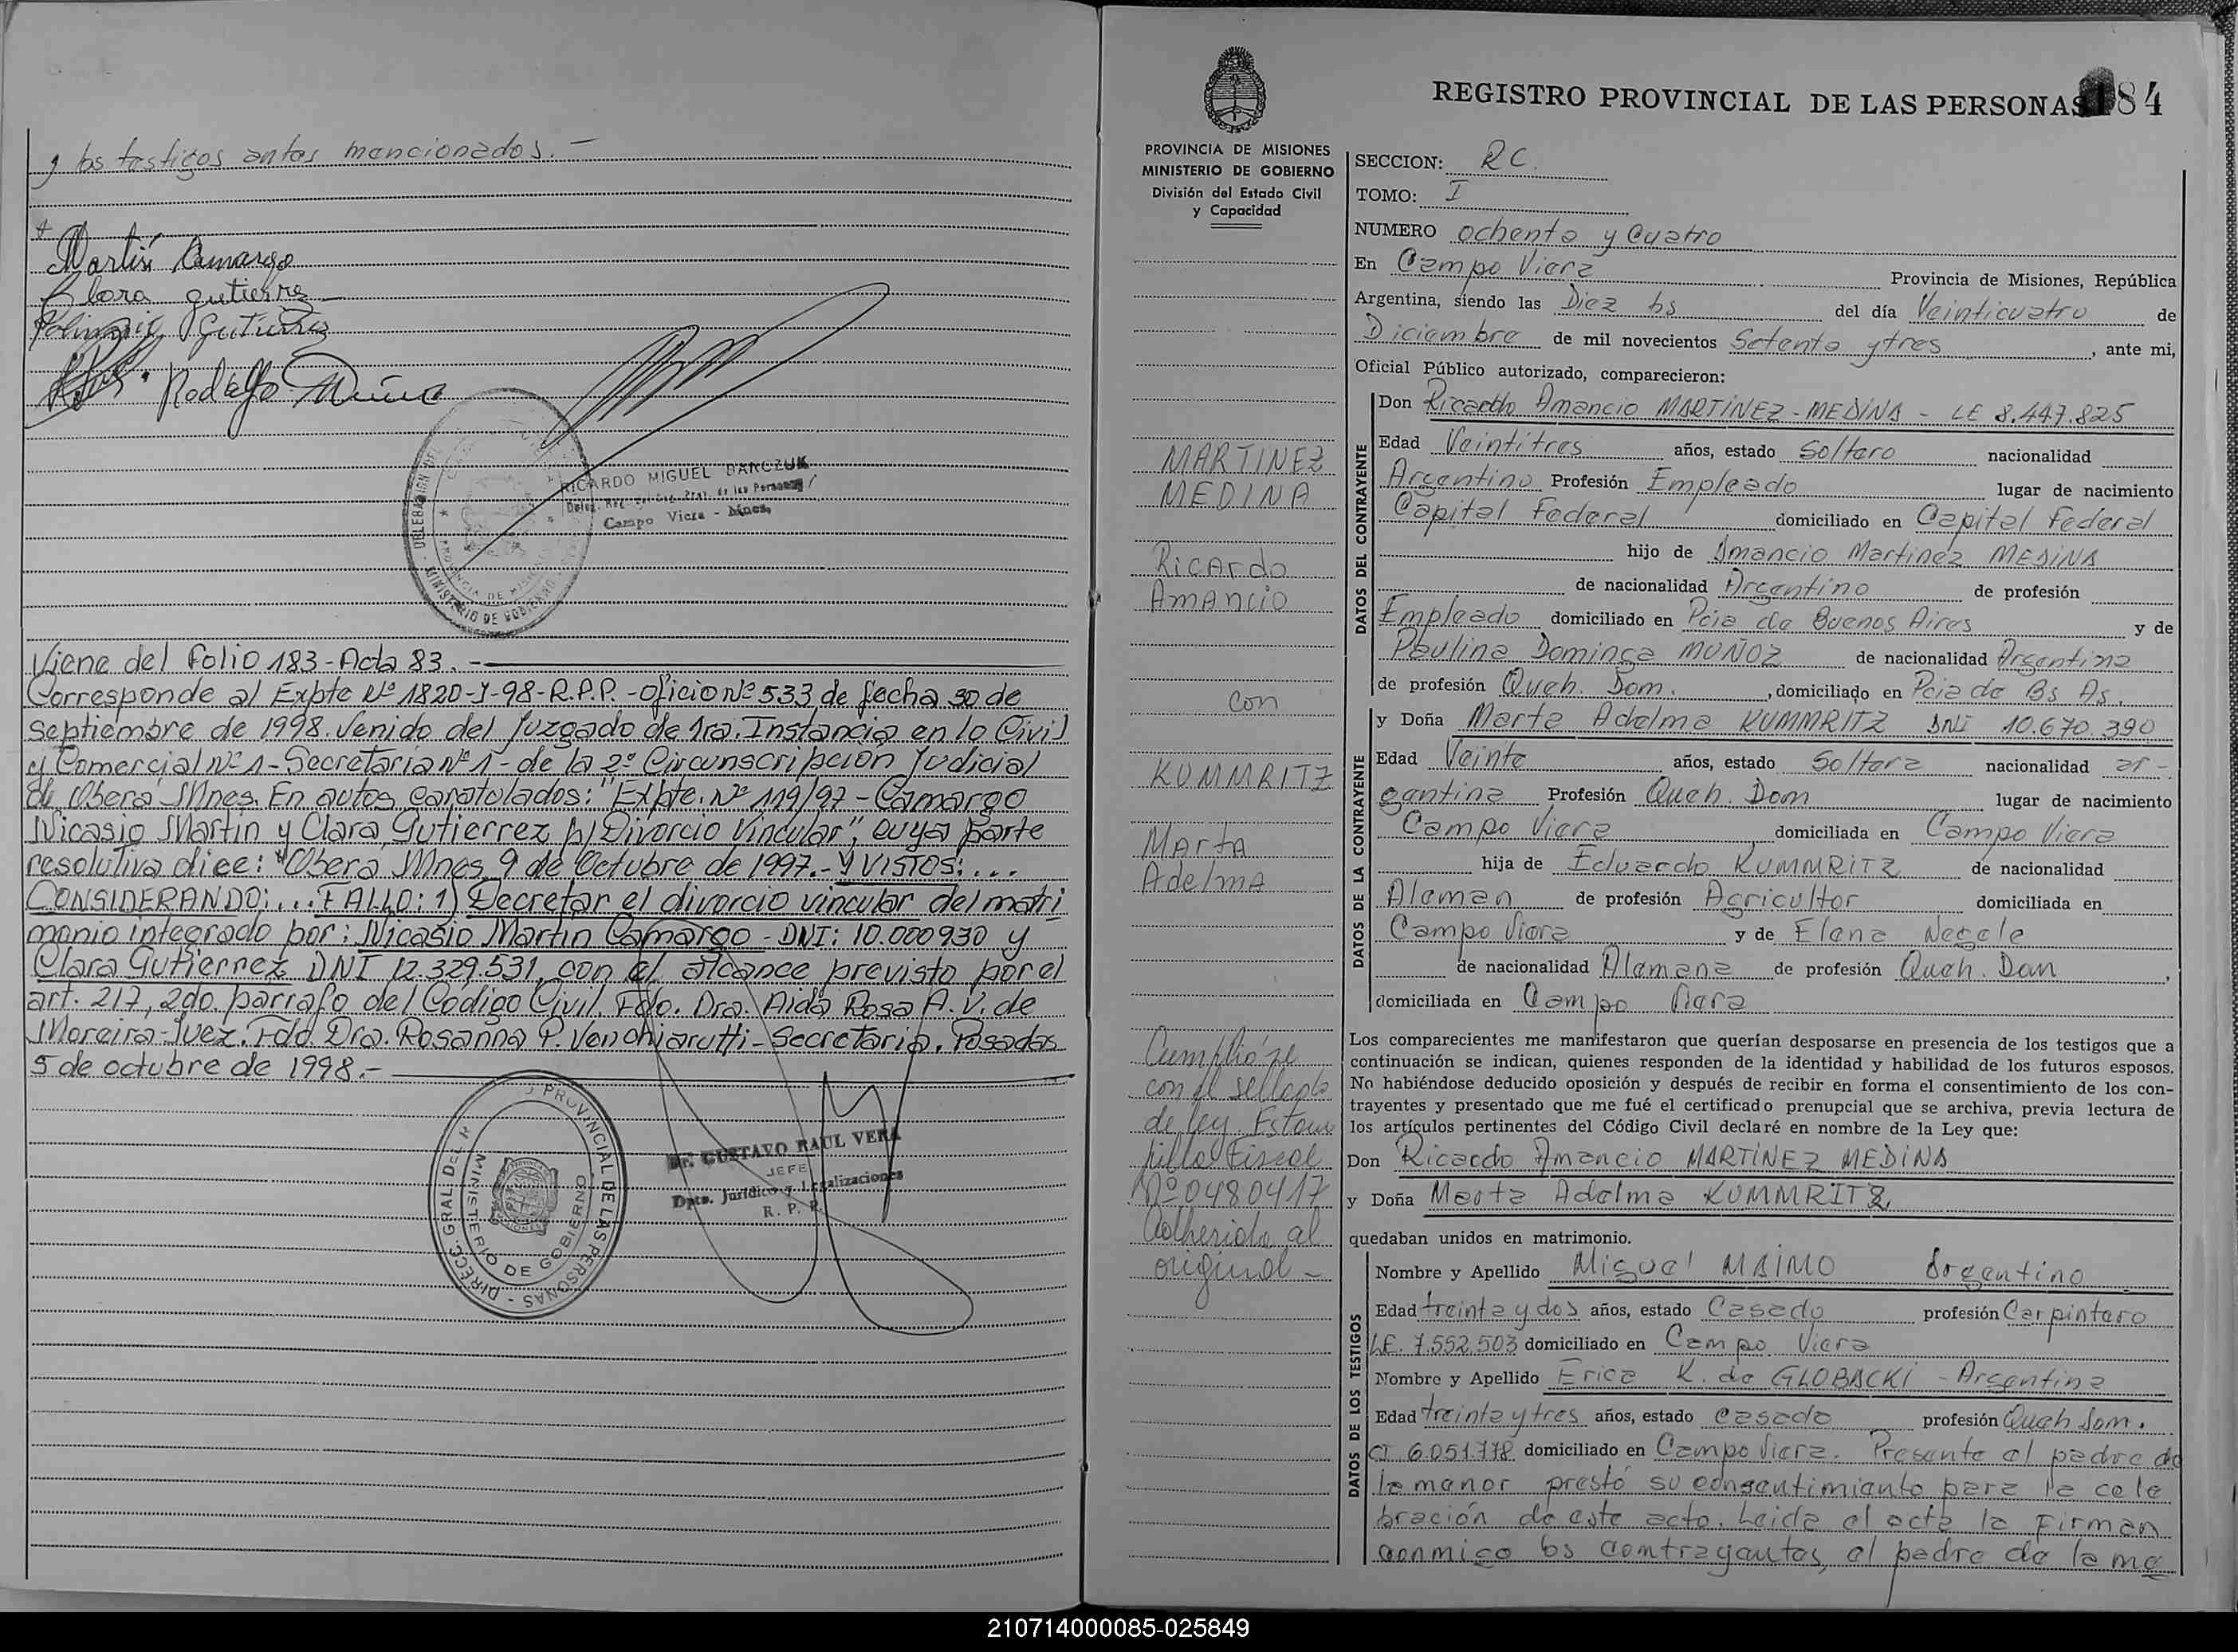 y los testigos antes mencionados. —
Martín Camargo
Clara Gutierrez
Gutierrez
Rodolfo Muñoz
RICARDO MIGUEL BARCZUK
Campo Viera - Mnes.
Viene del Folio 183 - Acta 83. -
Corresponde al Expte Nº 1820-J-98-R.P.P. - oficio Nº 533 de fecha 30 de
septiembre de 1998. Venido del Juzgado de 1ra. Instancia en lo Civil
y Comercial Nº 1 - Secretaría Nº 1 - de la 2º Circunscripción Judicial
de Oberá Mnes. En autos caratulados: "Expte. Nº 119/97 - Camargo
Nicasio Martín y Clara Gutierrez p/ Divorcio Vincular", cuya parte
resolutiva dice: "Oberá, Mnes, 9 de Octubre de 1997.- Y VISTOS: ...
CONSIDERANDO: ... FALLO: 1) Decretar el divorcio vincular del matri
monio integrado por: Nicasio Martín Camargo - DNI: 10.000930 y
Clara Gutierrez DNI 12.329.531, con el alcance previsto por el
art. 217, 2do. párrafo del Código Civil. Fdo. Dra. Aida Rosa A. V. de
Moreira - Juez. Fdo. Dra. Rosanna P. Venchiarutti - Secretaria. Posadas
5 de octubre de 1998.-
DIRECC. GRAL DEL R PROVINCIAL DE LAS PERSONAS
MINISTERIO DE GOBIERNO
Dr. GUSTAVO RAUL VERA
JEFE
Dpto. Jurídico y Legalizaciones
R. P. P.
REGISTRO PROVINCIAL DE LAS PERSONAS 184
PROVINCIA DE MISIONES
MINISTERIO DE GOBIERNO
División del Estado Civil
y Capacidad
MARTINEZ
MEDINA
Ricardo
Amancio
con
KUMMRITZ
Marta
Adelma
Cumplióse
con el sellado
de ley Estam
pilla Fiscal
Nº 0480417
Adherida al
original -
SECCION: RC.
TOMO: I
NUMERO ochenta y Cuatro
En Campo Viera Provincia de Misiones, República
Argentina, siendo las Diez hs del día Veinticuatro de
Diciembre de mil novecientos Setenta y tres, ante mi,
Oficial Público autorizado, comparecieron:
DATOS DEL CONTRAYENTE
Don Ricardo Amancio MARTINEZ-MEDINA - LE 8.447.825
Edad Veintitres años, estado Soltero nacionalidad
Argentino Profesión Empleado lugar de nacimiento
Capital Federal domiciliado en Capital Federal
hijo de Amancio Martinez MEDINA
de nacionalidad Argentino de profesión
Empleado domiciliado en Pcia de Buenos Aires y de
Paulina Dominga MUÑOZ de nacionalidad Argentina
de profesión Queh. Dom., domiciliado en Pcia de Bs As.
DATOS DE LA CONTRAYENTE
y Doña Marta Adelma KUMMRITZ DNI 10.670.390
Edad Veinte años, estado Soltera nacionalidad ar-
gentina Profesión Queh. Dom lugar de nacimiento
Campo Viera domiciliada en Campo Viera
hija de Eduardo KUMMRITZ de nacionalidad
Aleman de profesión Agricultor domiciliada en
Campo Viera y de Elena Negele
de nacionalidad Alemana de profesión Queh. Dom,
domiciliada en Campo Viera
Los comparecientes me manifestaron que querían desposarse en presencia de los testigos que a
continuación se indican, quienes responden de la identidad y habilidad de los futuros esposos.
No habiéndose deducido oposición y después de recibir en forma el consentimiento de los con-
trayentes y presentado que me fué el certificado prenupcial que se archiva, previa lectura de
los artículos pertinentes del Código Civil declaré en nombre de la Ley que:
Don Ricardo Amancio MARTINEZ MEDINA
y Doña Marta Adelma KUMMRITZ.
quedaban unidos en matrimonio.
DATOS DE LOS TESTIGOS
Nombre y Apellido Miguel MAIMO Argentino
Edad treinta y dos años, estado Casado profesión Carpintero
LE. 7.552.503 domiciliado en Campo Viera
Nombre y Apellido Erica K. de GLOBACKI - Argentina
Edad treinta y tres años, estado casada profesión Queh Dom.
CI 6.051.778 domiciliado en Campo Viera. Presente el padre de
la menor prestó su consentimiento para la cele
bración de este acto. Leida el acta la Firman
conmigo los contrayentes, el padre de la me
210714000085-025849